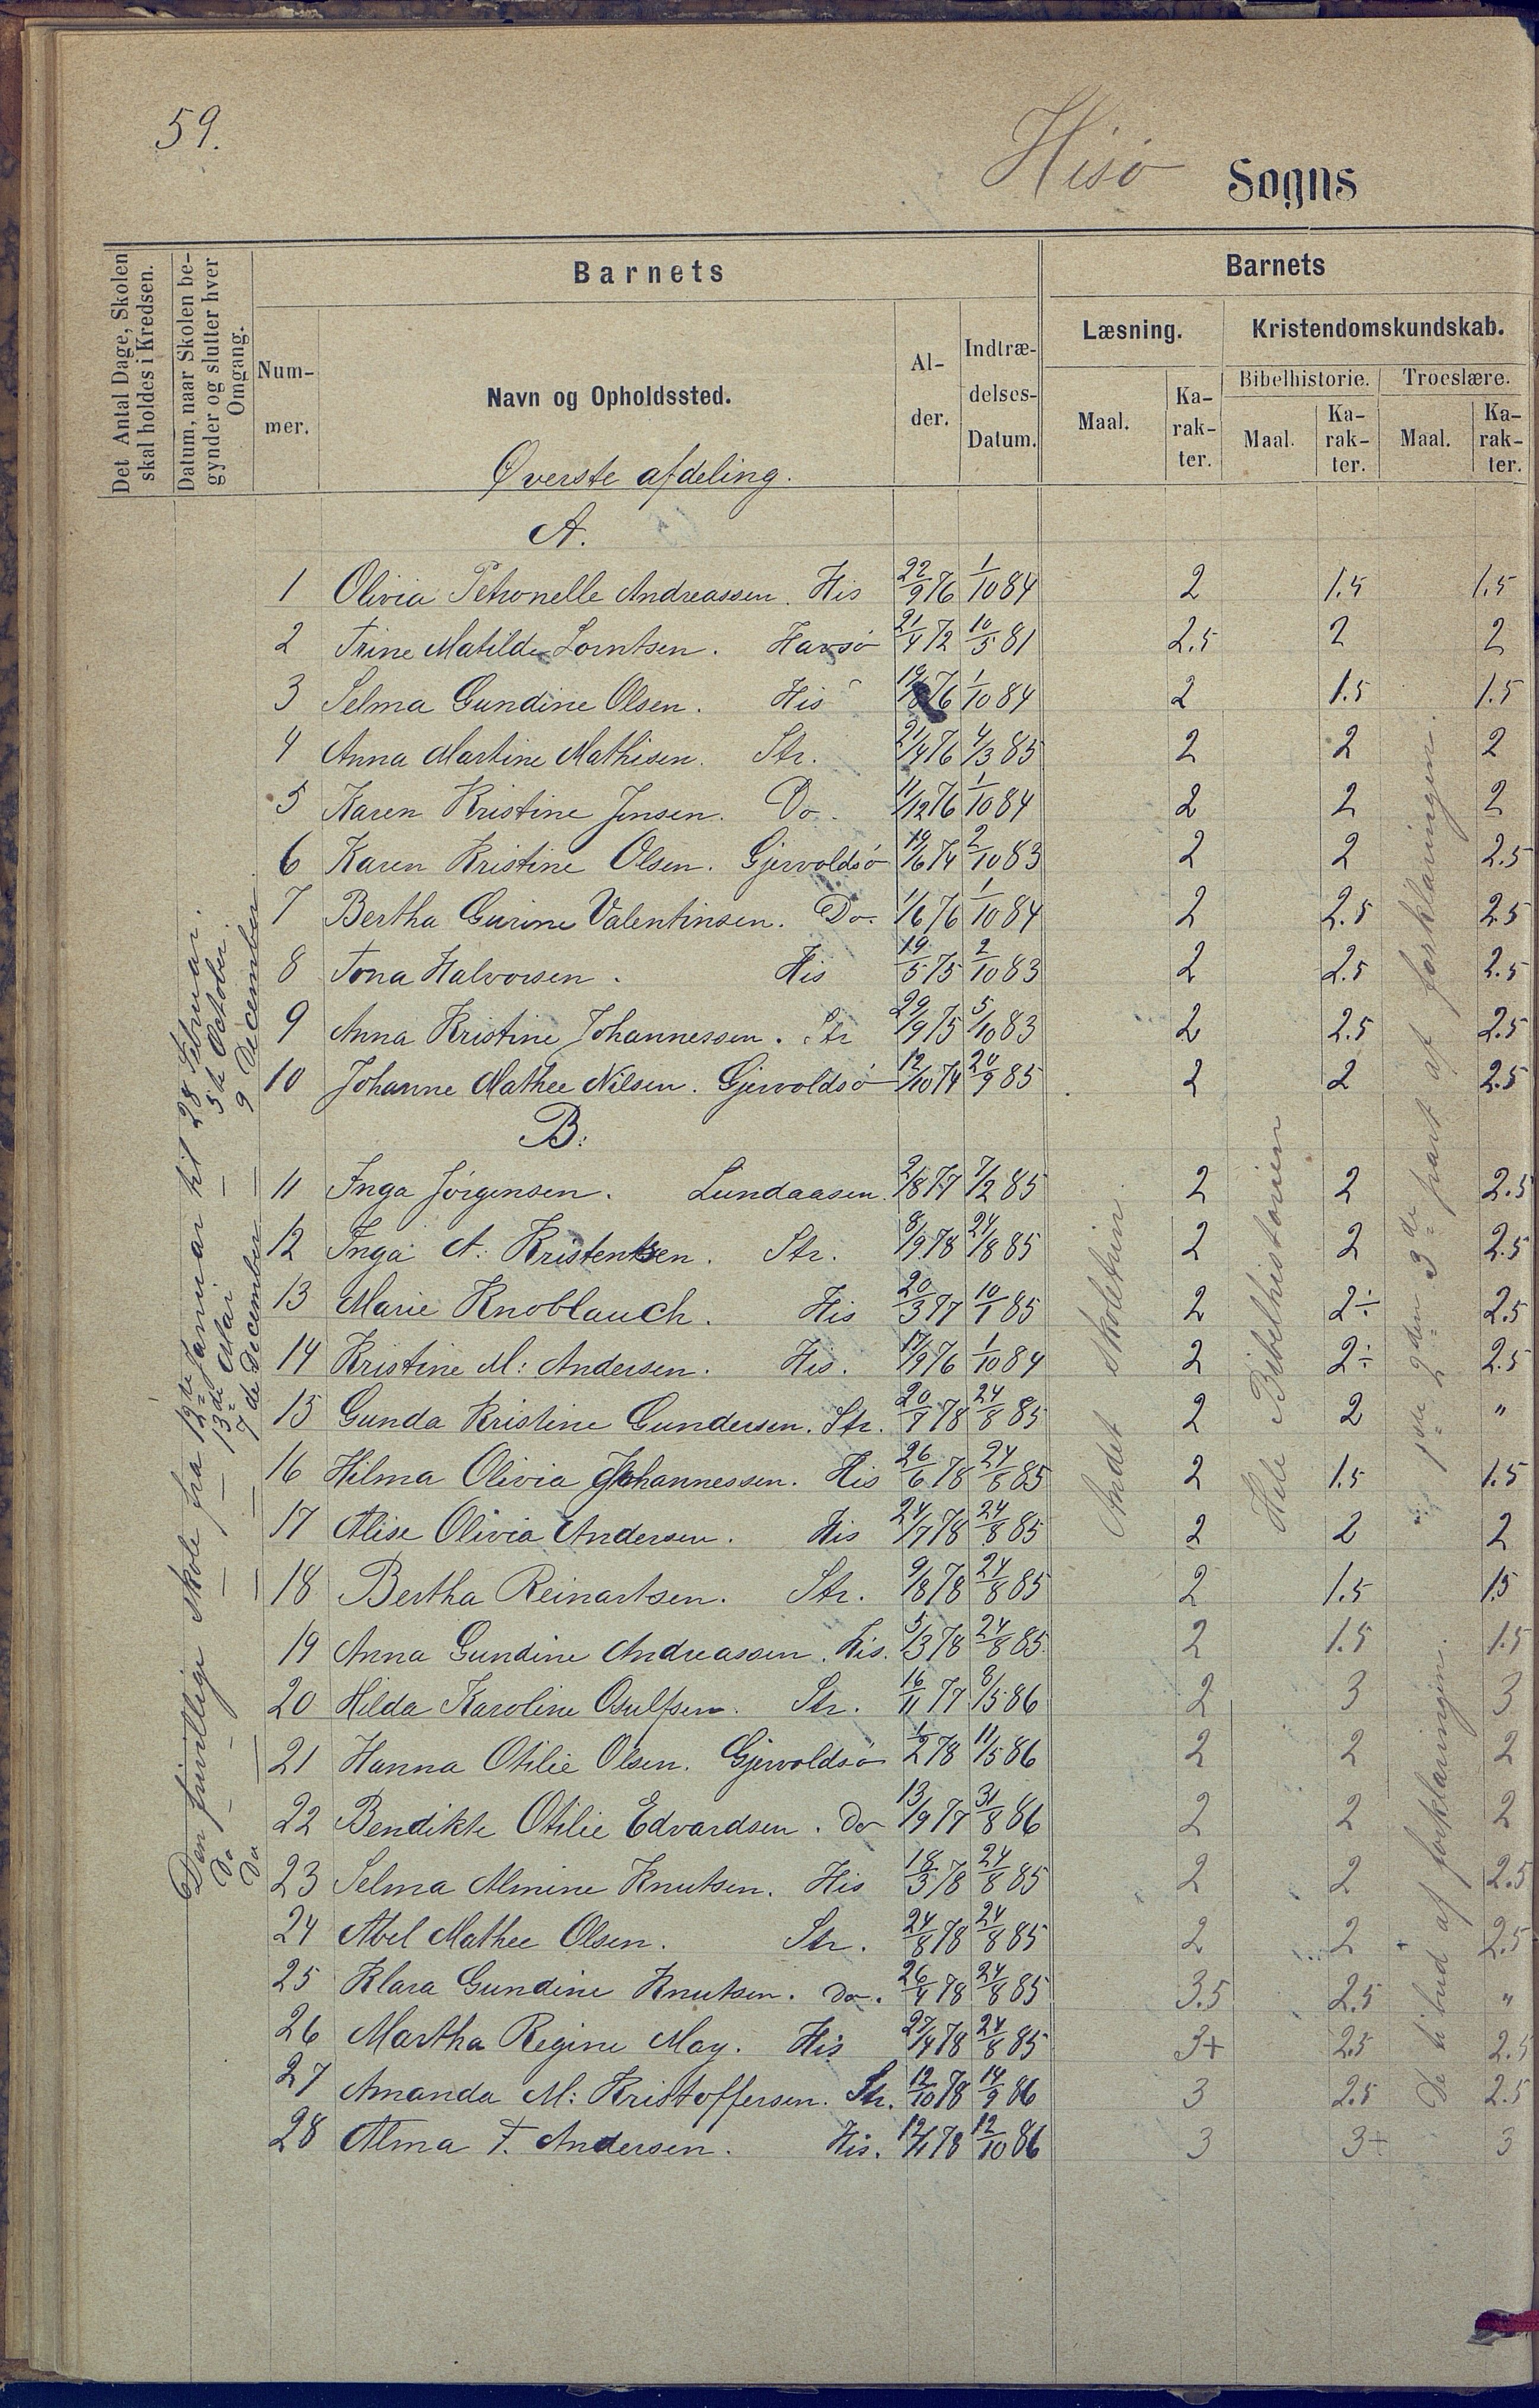 59.
Hisö Sogns
Det Antal Dage, Skolen skal holdes i Kredsen.
Datum, naar Skolen begynder og slutter hver Omgang.
Barnets
Barnets
Nummer.
Navn og Opholdssted.
Alder.
Indtrædelses-Datum.
Læsning.
Kristendomskundskab.
Bibelhistorie.
Troeslære.
Maal.
Karakter.
Maal.
Karakter.
Maal.
Karakter.
Øverste afdeling.
A.
1 Olivia Petronelle Andreassen. His 22/9 76 1/10 84 2 1.5 1.5
2 Trine Matilde Lorntsen. Havsö 21/4 72 10/5 81 2.5 2 2
3 Selma Gundine Olsen. His 19/8 76 1/10 84 2 1.5 1.5
4 Anna Martine Mathisen. Str. 21/4 76 4/3 85 2 2 2
5 Karen Kristine Jensen. Do. 11/12 76 1/10 84 2 2 2
6 Karen Kristine Olsen. Gjervoldsö 19/6 74 2/10 83 2 2 2.5
7 Bertha Gurine Valentinsen. Do. 1/6 76 1/10 84 2 2.5 2.5
8 Tona Halvorsen. His 19/5 75 2/10 83 2 2.5 2.5
9 Anna Kristine Johannessen. Str 29/9 75 5/10 83 2 2.5 2.5
10 Johanne Mathee Nilsen. Gjervoldsö 12/10 74 20/9 85 2 2 2.5
B:
11 Inga Jörgensen. Lundaasen. 2/8 77 7/2 85 2 2 2.5
12 Inga A: Kristentsen. Str. 8/9 78 24/8 85 2 2 2.5
13 Marie Knoblauch. His 20/3 77 10/1 85 2 2÷ 2.5
14 Kristine M: Andersen. His. 17/9 76 1/10 84 2 2÷ 2.5
15 Gunda Kristine Gundersen. Str. 20/7 78 24/8 85 2 2 "
16 Hilma Olivia Johannessen. His 26/6 78 24/8 85 2 1.5 1.5
17 Alise Olivia Andersen. His 24/7 78 24/8 85 2 2 2
18 Bertha Reinartsen. Str. 9/8 78 24/8 85 2 1.5 1.5
19 Anna Gundine Andreassen. His. 5/3 78 24/8 85 2 1.5 1.5
20 Hilda Karoline Osulfsen. Str. 16/11 77 8/5 86 2 3 3
21 Hanna Otilie Olsen. Gjervoldsö 1/2 78 11/5 86 2 2 2
22 Bendikte Otilie Edvardsen. Do 13/9 77 31/8 86 2 2 2
23 Selma Almine Knutsen. His 18/3 78 24/8 85 2 2 2.5
24 Abel Mathee Olsen. Str. 24/8 78 24/8 85 2 2 2.5
25 Klara Gundine Knutsen. Do. 26/4 78 24/8 85 3.5 2.5 "
26 Martha Regine May. His 27/4 78 24/8 85 3+ 2.5 2.5
27 Amanda M: Kristoffersen. Str. 12/10 78 14/9 86 3 2.5 2.5
28 Alma F. Andersen. His. 12/11 78 12/10 86 3 3+ 3
Den frivillige skole fra 12te Januar til 28 Februar.
Do — 13de Mai — 5te October.
Do — 7de December — 9 December
Andet skoletrin.
Hele Bibelhistorien
1ste 2den 3de part af forklaringen.
De ti bud af forklaringen.